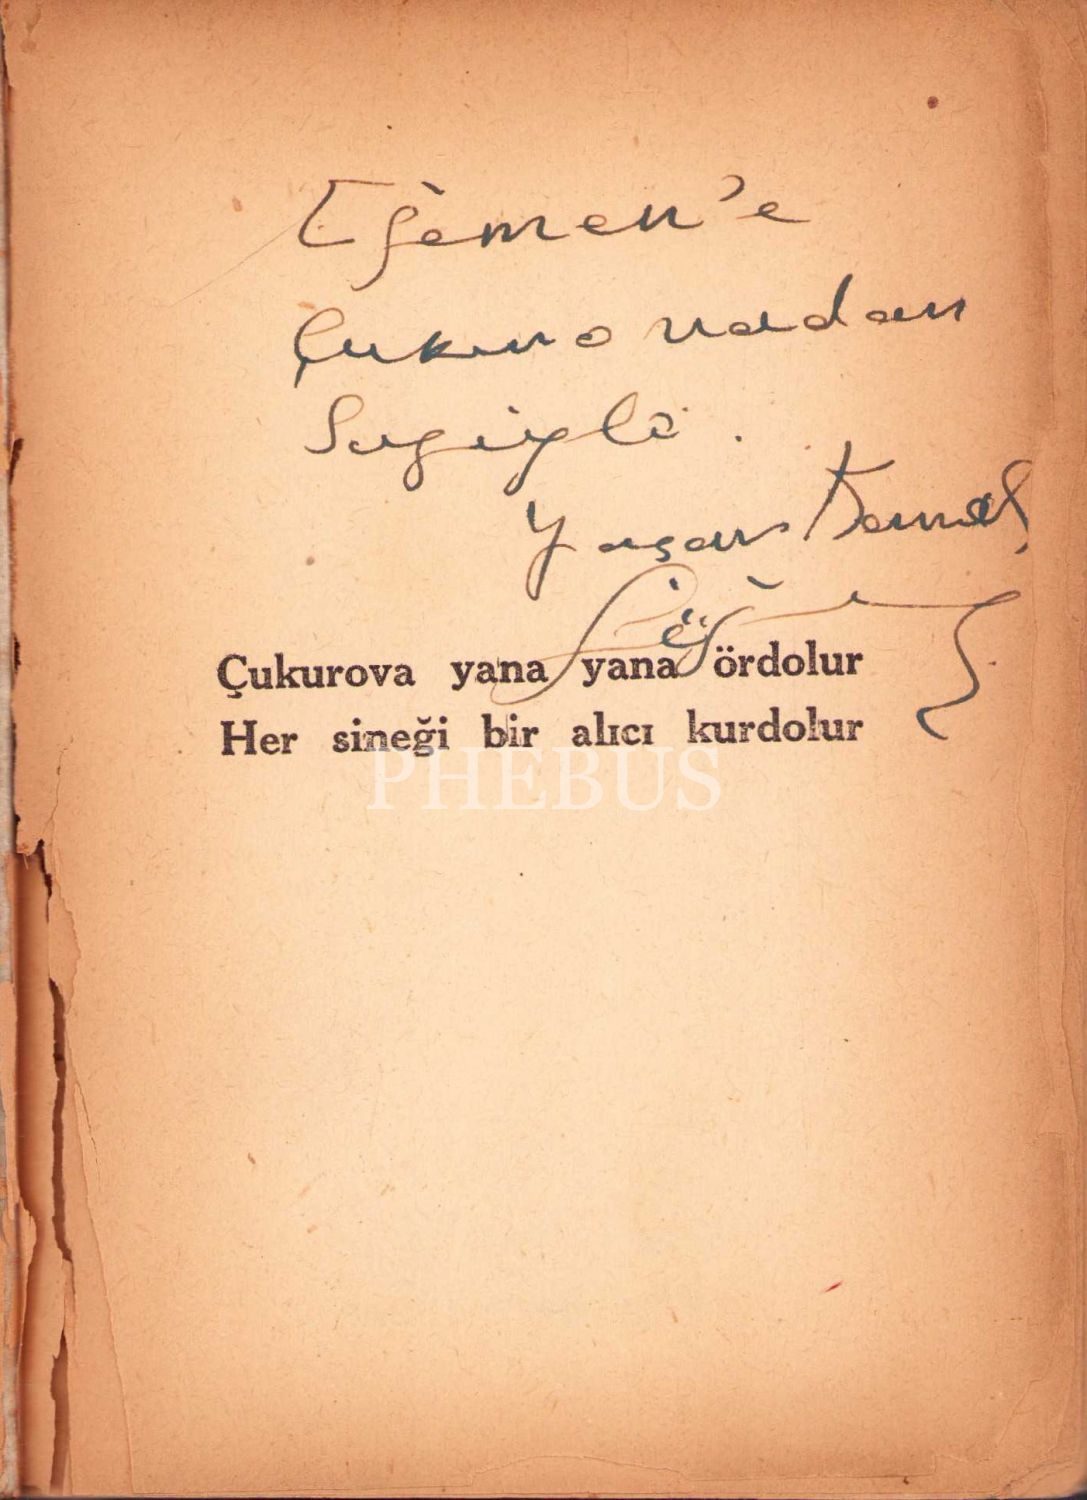 Egemen'e
Çukurovadan
Sevgiyle.
Yaşar Kemal
Çukurova yana yana ördolur
Her sineği bir alıcı kurdolur
PHEBUS